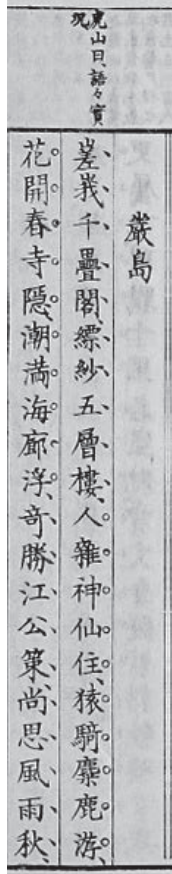 鹿山曰、語々實
況、
嚴島
嵳峩千疊閣縹紗五層樓、人雜神仙住、猿騎麋鹿游、
花開春寺隱、潮満海廊浮、奇勝江公策、尚思風雨秋、